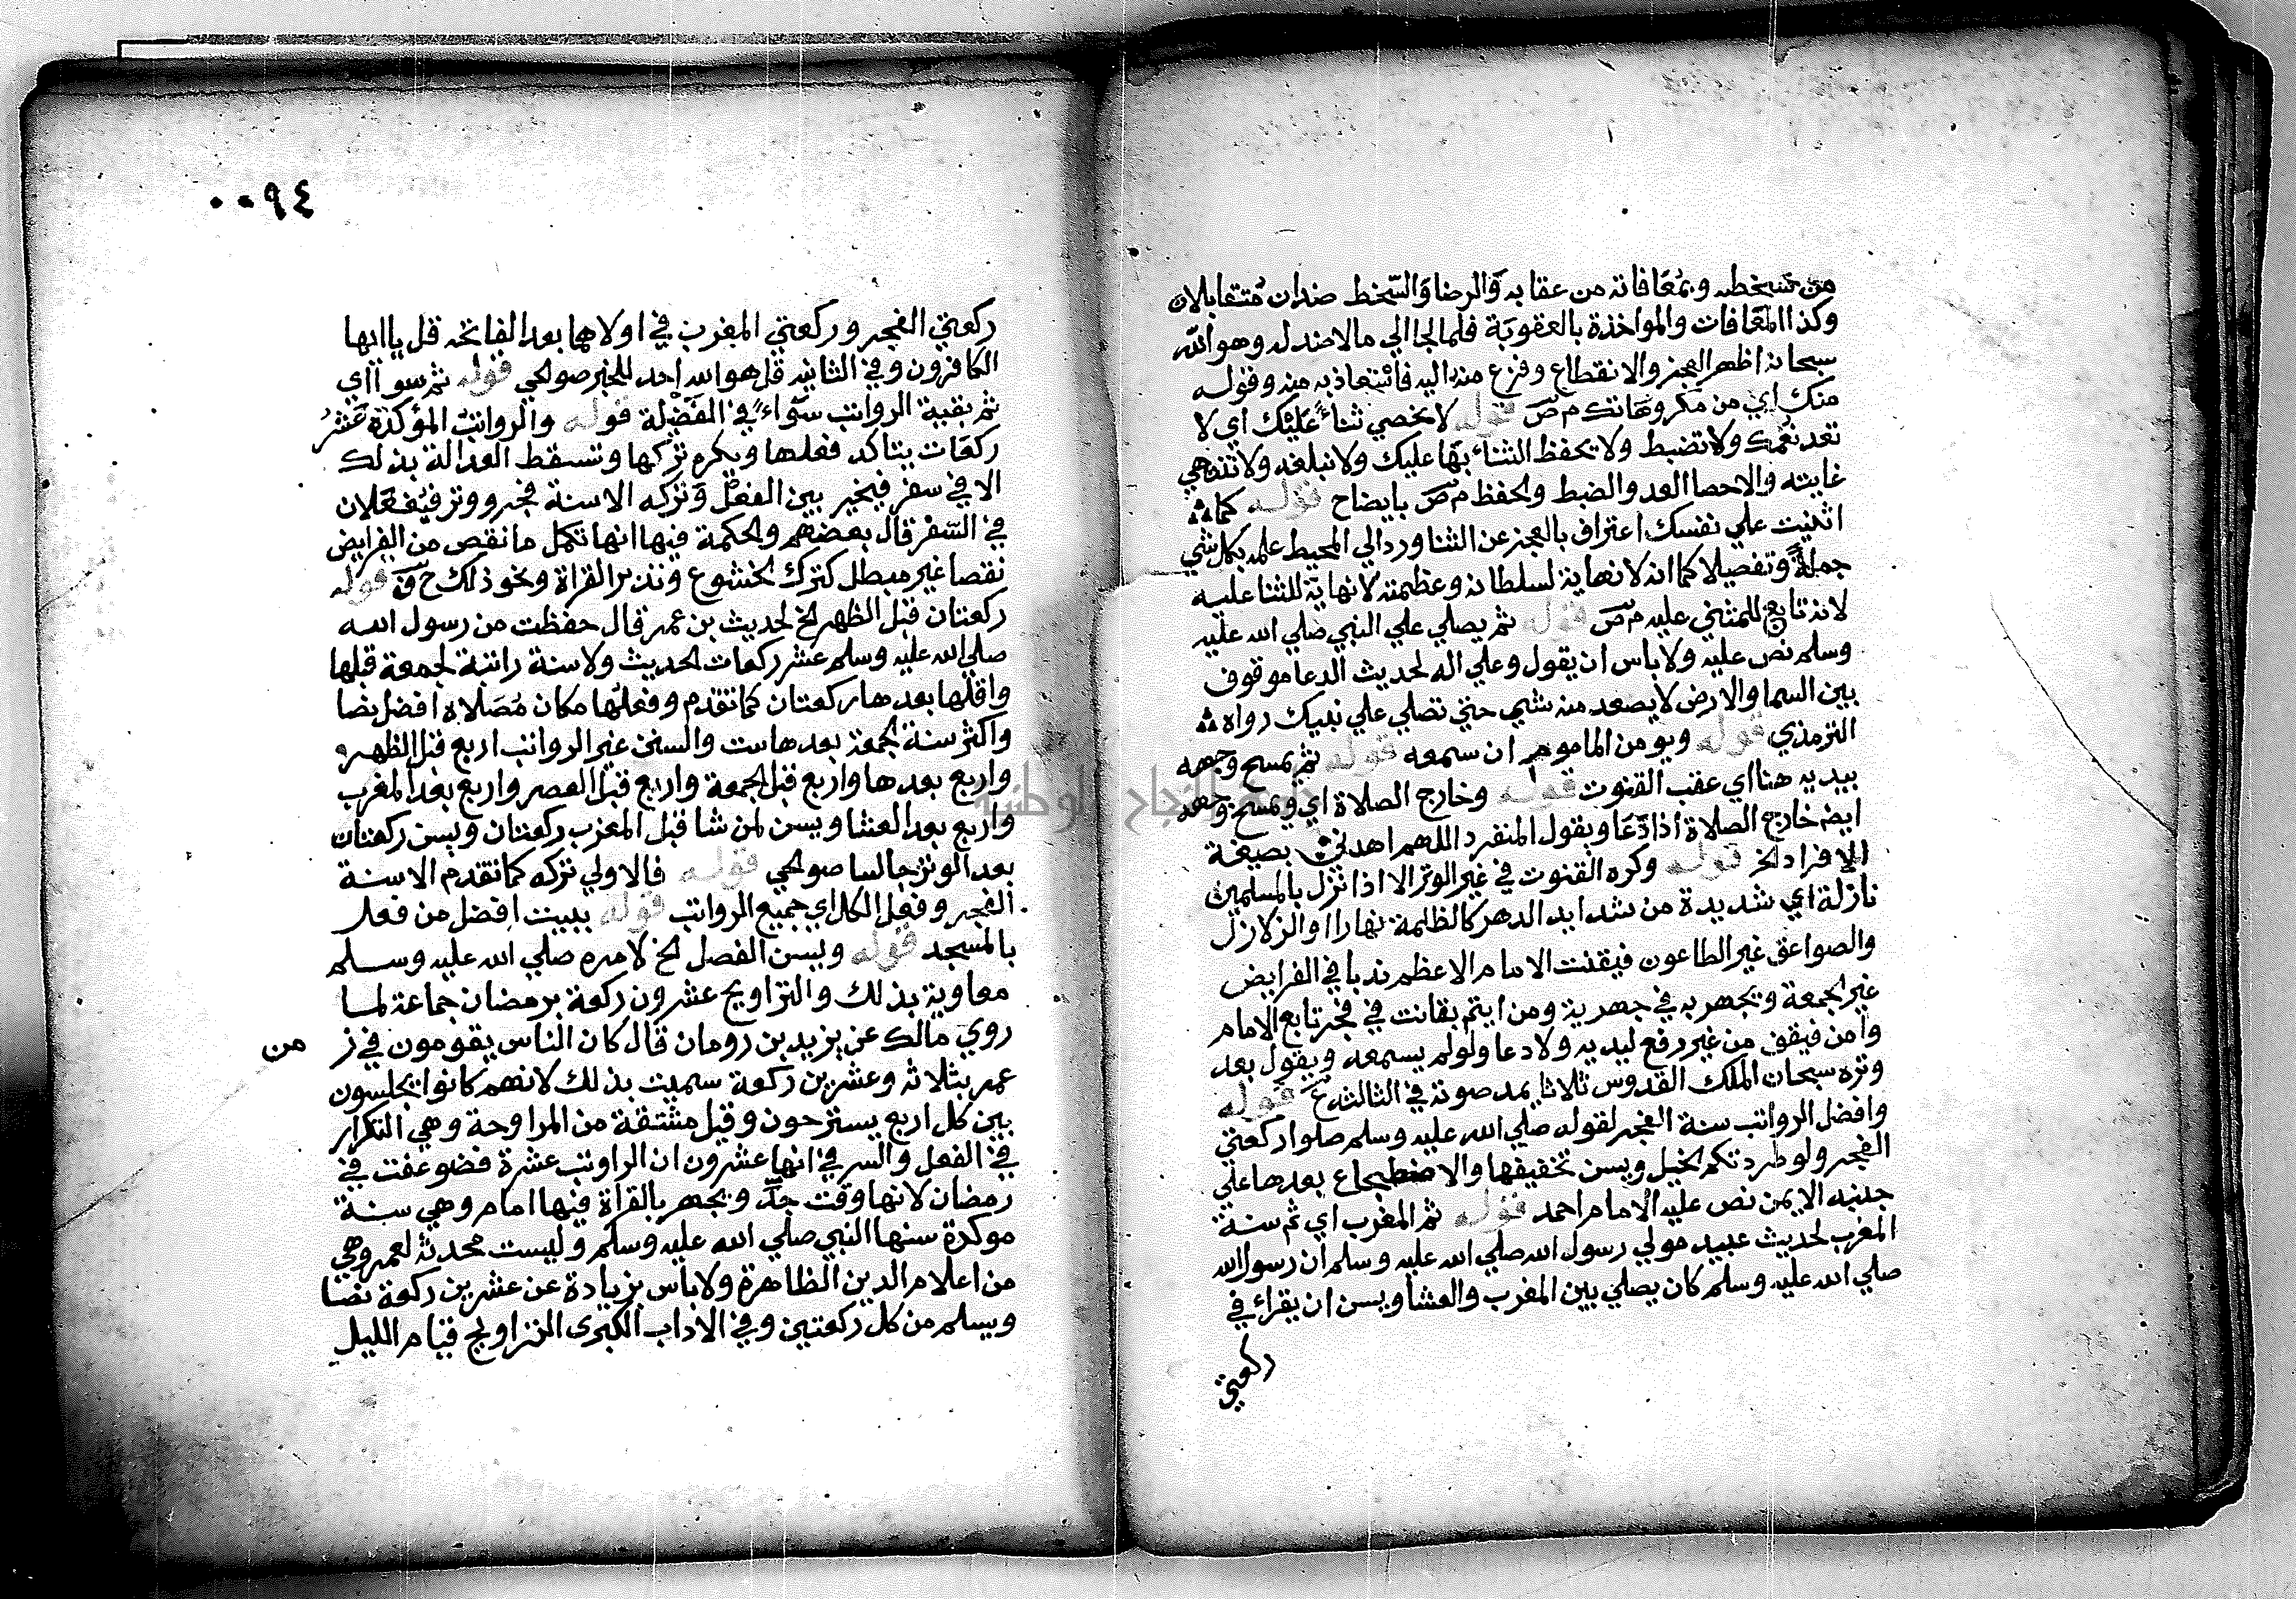 من سخطه وبمعافاته من عقابه والرضا والسخط ضدان متقابلان
وكذا المعافات والمواخذة بالعقوبة فلما لجا الي مالا ضد له وهو الله
سبحانه اظهر العجز والانقطاع وفزع منه اليه فاستعاذ به منه وقوله
منك اي من مكروهاتك م ص قوله لا نحصي ثناءً عليك اي لا
نعد نعمك ولا نضبط ولا نحفظ الثناء بها عليك ولا نبلغه ولا تنتهي
غايته والاحصا العد والضبط والحفظ م ص بايضاح قوله كما
اثنيت علي نفسك اعتراف بالعجز عن الثنا ورد الي المحيط علمه بكل شي
جملةً وتفصيلا كما انه لا نهاية لسلطانه وعظمته لا نهاية للثنا عليه
لانه تابع للمثني عليه م ص قوله ثم يصلي علي النبي صلي الله عليه
وسلم نص عليه ولا باس ان يقول وعلي اله لحديث الدعا موقوف
بين السما والارض لا يصعد منه شي حتي تصلي علي نبيك رواه
الترمذي قوله ويومن الماموم ان سمعه قوله ثم يمسح وجهه
بيديه هنا اي عقب القنوت قوله وخارج الصلاة اي ويمسح وجهه
ايضا خارج الصلاة اذا دعا ويقول المنفرد اللهم اهدني بصيغة
الافراد الخ قوله وكره القنوت في غير الوتر الا اذا نزل بالمسلمين
نازلة اي شديدة من شدايد الدهر كالظلمة نهارا والزلازل
والصواعق غير الطاعون فيقنت الامام الاعظم ندبا في الفرايض
غير الجمعة ويجهر به في جهرية ومن ايتم بقانت في فجر تابع الامام
وامن فيقف من غير رفع ليديه ولا دعا ولو لم يسمعه ويقول بعد
وتره سبحان الملك القدوس ثلاثا يمد صوته في الثالثه ع قوله
وافضل الرواتب سنة الفجر لقوله صلي الله عليه وسلم صلوا ركعتي
الفجر ولو طردتكم الخيل ويسن تخفيفها والاضطجاع بعدها علي
جنبه الايمن نص عليه الامام احمد قوله ثم المغرب اي ثم سنة
المغرب لحديث عبيد مولي رسول الله صلي الله عليه وسلم ان رسول الله
صلي الله عليه وسلم كان يصلي بين المغرب والعشا ويسن ان يقراء في
ركعتي
٠٠٩٤
ركعتي الفجر وركعتي المغرب في اولاهما بعد الفاتحه قل ياايها
الكافرون وفي الثانيه قل هو الله احد للخبر صوالحي قوله ثم سوا اي
ثم بقية الرواتب سواءً في الفضيلة قوله والرواتب المؤكدة عشر
ركعات يتاكد فعلها ويكره تركها وتسقط العدالة بذلك
الا في سفر فيخير بين الفعل وتركه الا سنة فجر ووتر فيفعلان
في السفر قال بعضهم والحكمة فيها انها تكمل ما نقص من الفرايض
نقصا غير مبطل كترك الخشوع وتدبر القراة ونحو ذلك ح ف قوله
ركعتان قبل الظهر الخ لحديث بن عمر قال حفظت من رسول الله
صلي الله عليه وسلم عشر ركعات الحديث ولا سنة راتبة لجمعة قبلها
واقلها بعدها ركعتان كما تقدم وفعلها مكان مصلاه افضل نصا
واكثر سنة الجمعة بعدها ست والسنن غير الرواتب اربع قبل الظهر
واربع بعدها واربع قبل الجمعة واربع قبل العصر واربع بعد المغرب
واربع بعد العشا ويسن لمن شا قبل المغرب ركعتان ويسن ركعتان
بعد الوتر جالسا صوالحي قوله فالاولي تركه كما تقدم الا سنة
الفجر وفعل الكل اي جميع الرواتب قوله ببيت افضل من فعل
بالمسجد قوله ويسن الفصل الخ لامره صلي الله عليه وسلم
معاوية بذلك والتراويح عشرون ركعة برمضان جماعة لما
روي مالك عن يزيد بن رومان قال كان الناس يقومون في ز من
عمر بثلاثه وعشرين ركعة سميت بذلك لانهم كانوا يجلسون
بين كل اربع يستريحون وقيل مشتقة من المراوحة وهي التكرار
في الفعل والسر في انها عشرون ان الراوتب عشرة فضوعفت في
رمضان لانها وقت جدّ ويجهر بالقراة فيها امام وهي سنة
موكدة سنها النبي صلي الله عليه وسلم وليست محدثة لعمر وهي
من اعلام الدين الظاهرة ولا باس بزيادة عن عشرين ركعة نصا
ويسلم من كل ركعتين وفي الاداب الكبرى التراويح قيام الليل